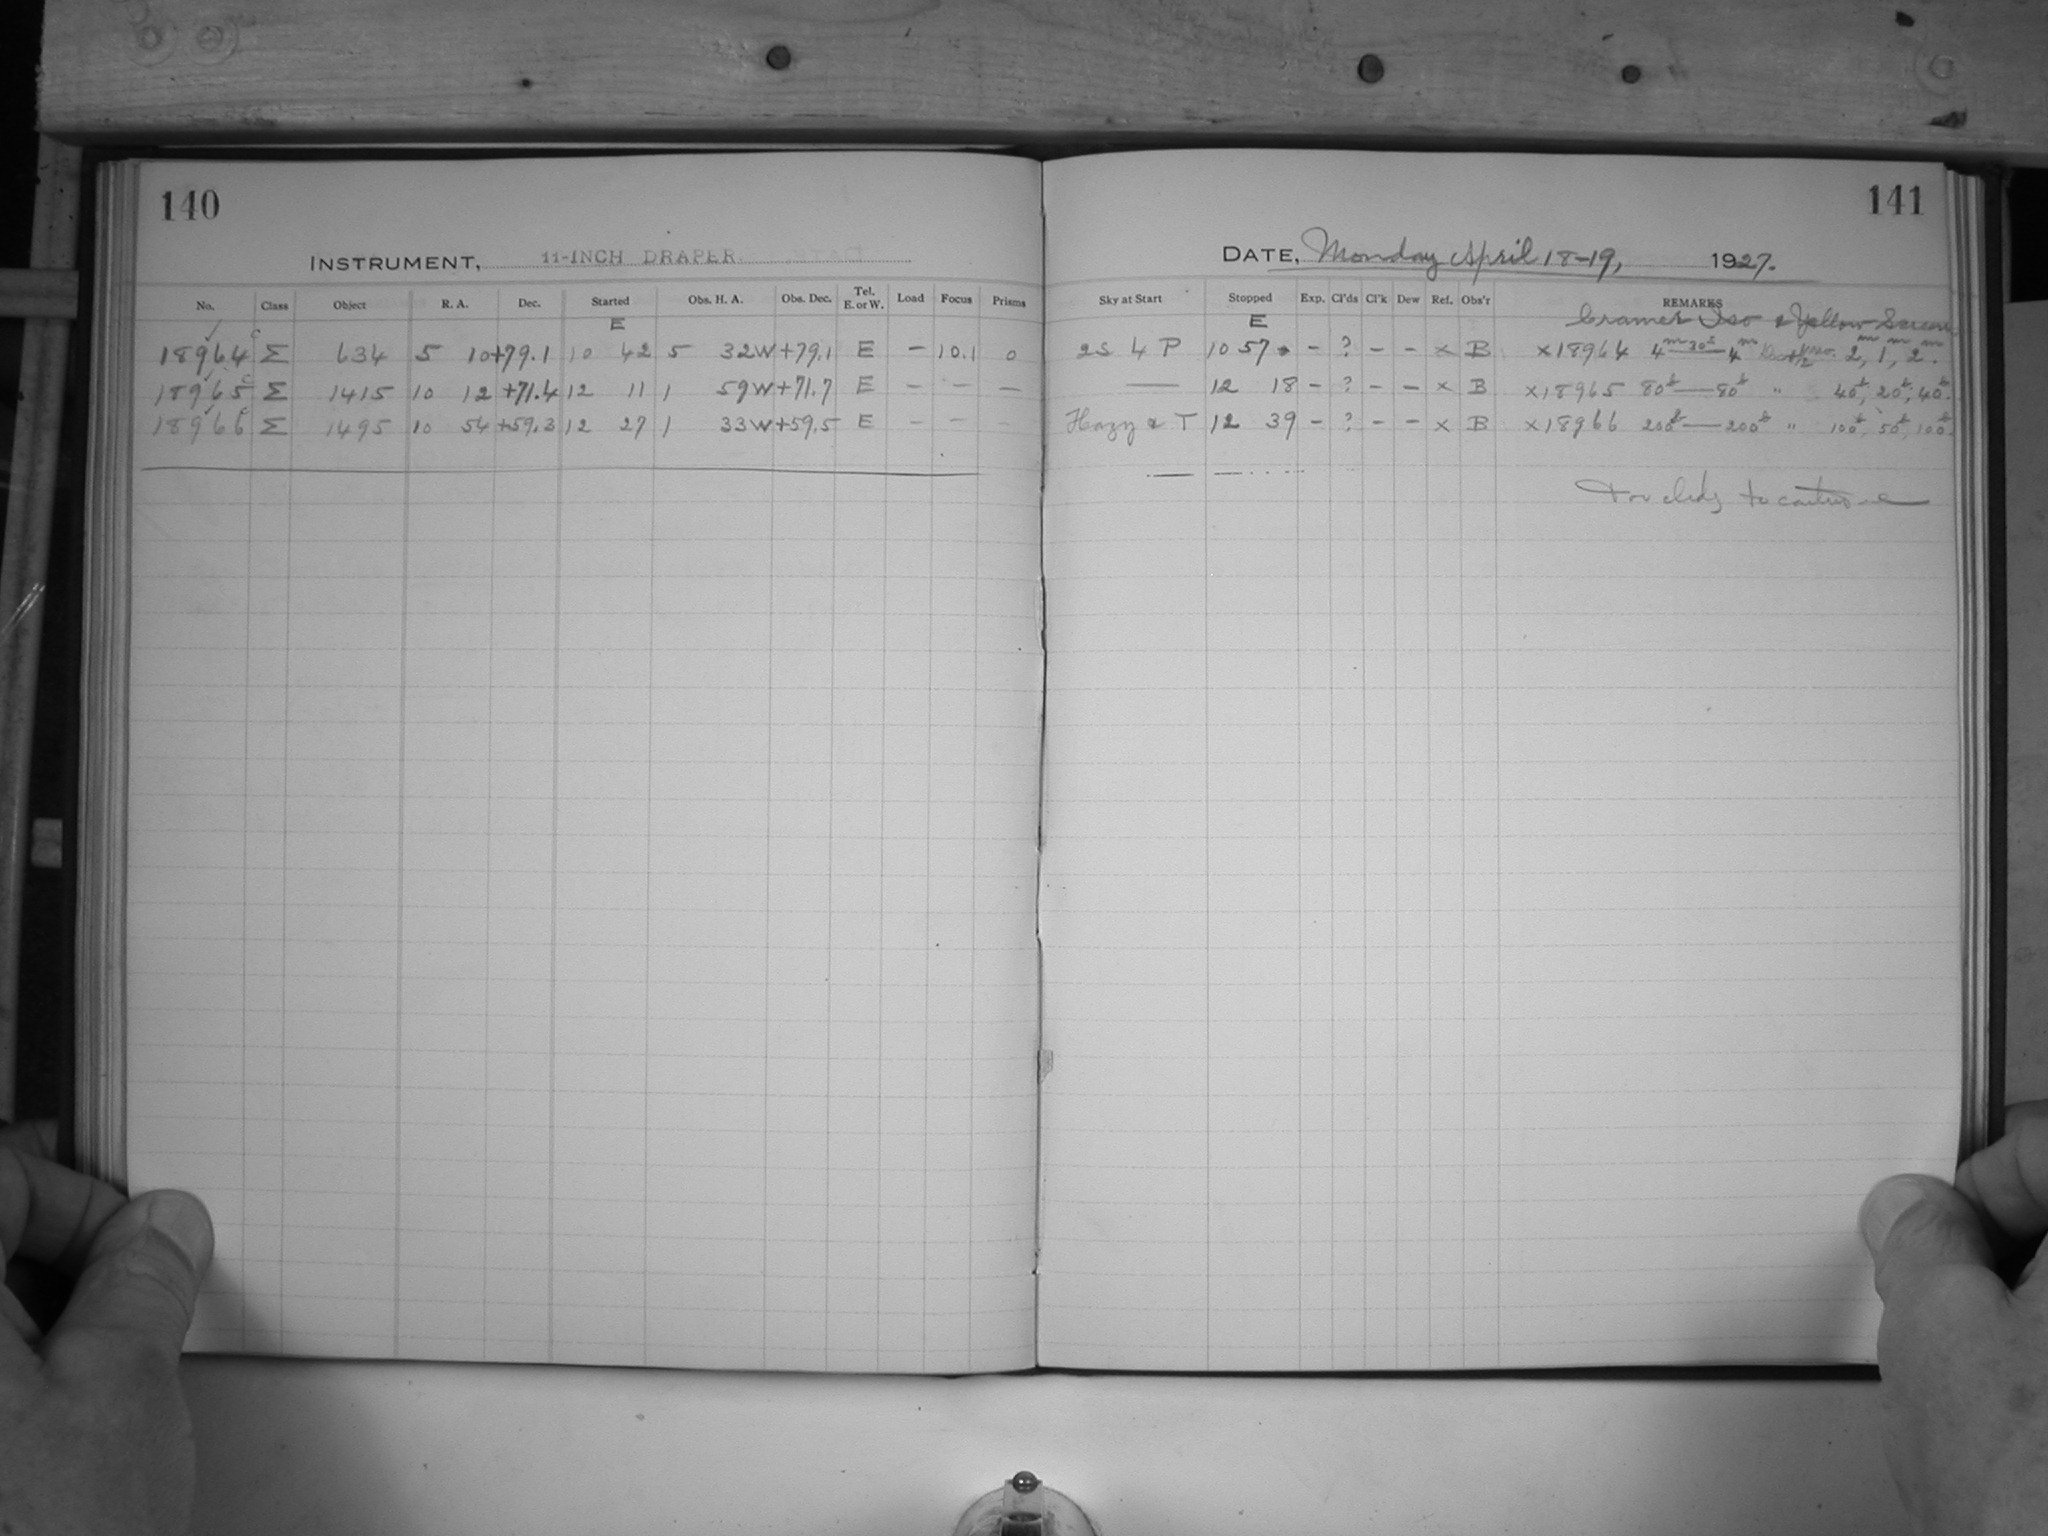 140
INSTRUMENT, 11-INCH DRAPER.
No. Class Object R. A. Dec. Started Obs. H. A. Obs. Dec. Tel. E. or W. Load Focus Prisms
E
18964 c Σ 634 5 10 +79.1 10 42 5 32W +79.1 E - 10.1 0
18965 c Σ 1415 10 12 +71.4 12 11 1 59W +71.7 E - - -
18966 c Σ 1495 10 54 +59.3 12 27 1 33W +59.5 E - - -
141
DATE, Monday April 18-19, 1927.
Sky at Start Stopped Exp. Cl'ds Cl'k Dew Ref. Obs'r REMARKS
E Cramer Iso & Yellow Screen
2S 4 P 10 57 - ? - - x B x18964 4m30s — 4m 2m, 1m, 2m.
— 12 18 - ? - - x B x18965 80s — 80s " 40s, 20s, 40s.
Hazy & T 12 39 - ? - - x B x18966 200s — 200s " 100s, 50s, 100s.
Too cldy to continue